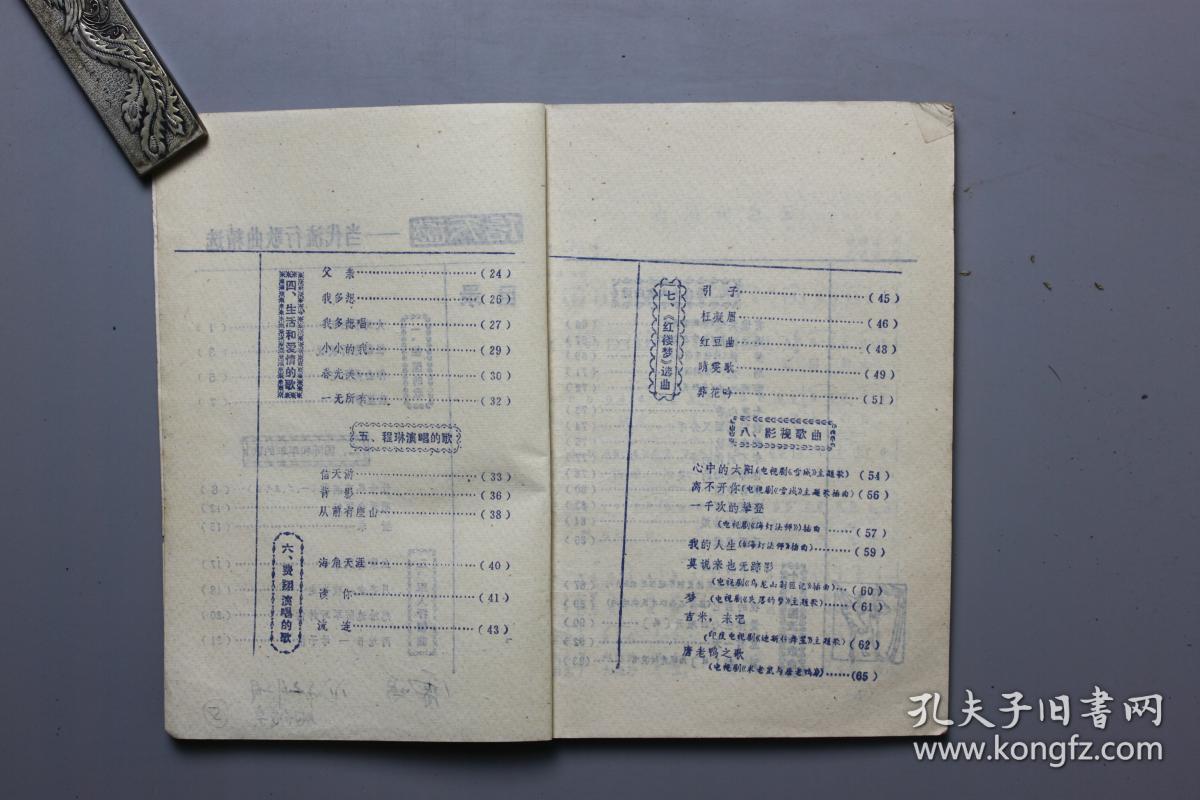 四、生活和爱情的歌
父亲……(24)
我多想……(26)
我多想唱……(27)
小小的我……(29)
春光美……(30)
一无所有……(32)
五、程琳演唱的歌
信天游……(33)
背影……(36)
从前有座山……(38)
六、费翔演唱的歌
海角天涯……(40)
读你……(41)
流连……(43)
七、《红楼梦》选曲
引子……(45)
枉凝眉……(46)
红豆曲……(48)
晴雯歌……(49)
葬花吟……(51)
八、影视歌曲
心中的太阳(电视剧《雪城》主题歌)(54)
离不开你(电视剧《雪城》主题歌插曲)(56)
一千次的攀登
(电视剧《海灯法师》)插曲……(57)
我的人生(《海灯法师》插曲)……(59)
莫说来也无踪影
(电视剧《乌龙山剿匪记》插曲)…(60)
梦(电视剧《失落的梦》主题歌)…(61)
吉米,来吧
(印度电视剧《迪斯科舞星》主题歌)(62)
唐老鸭之歌
(电视剧《米老鼠与唐老鸭》)……(65)
孔夫子旧书网
www.kongfz.com